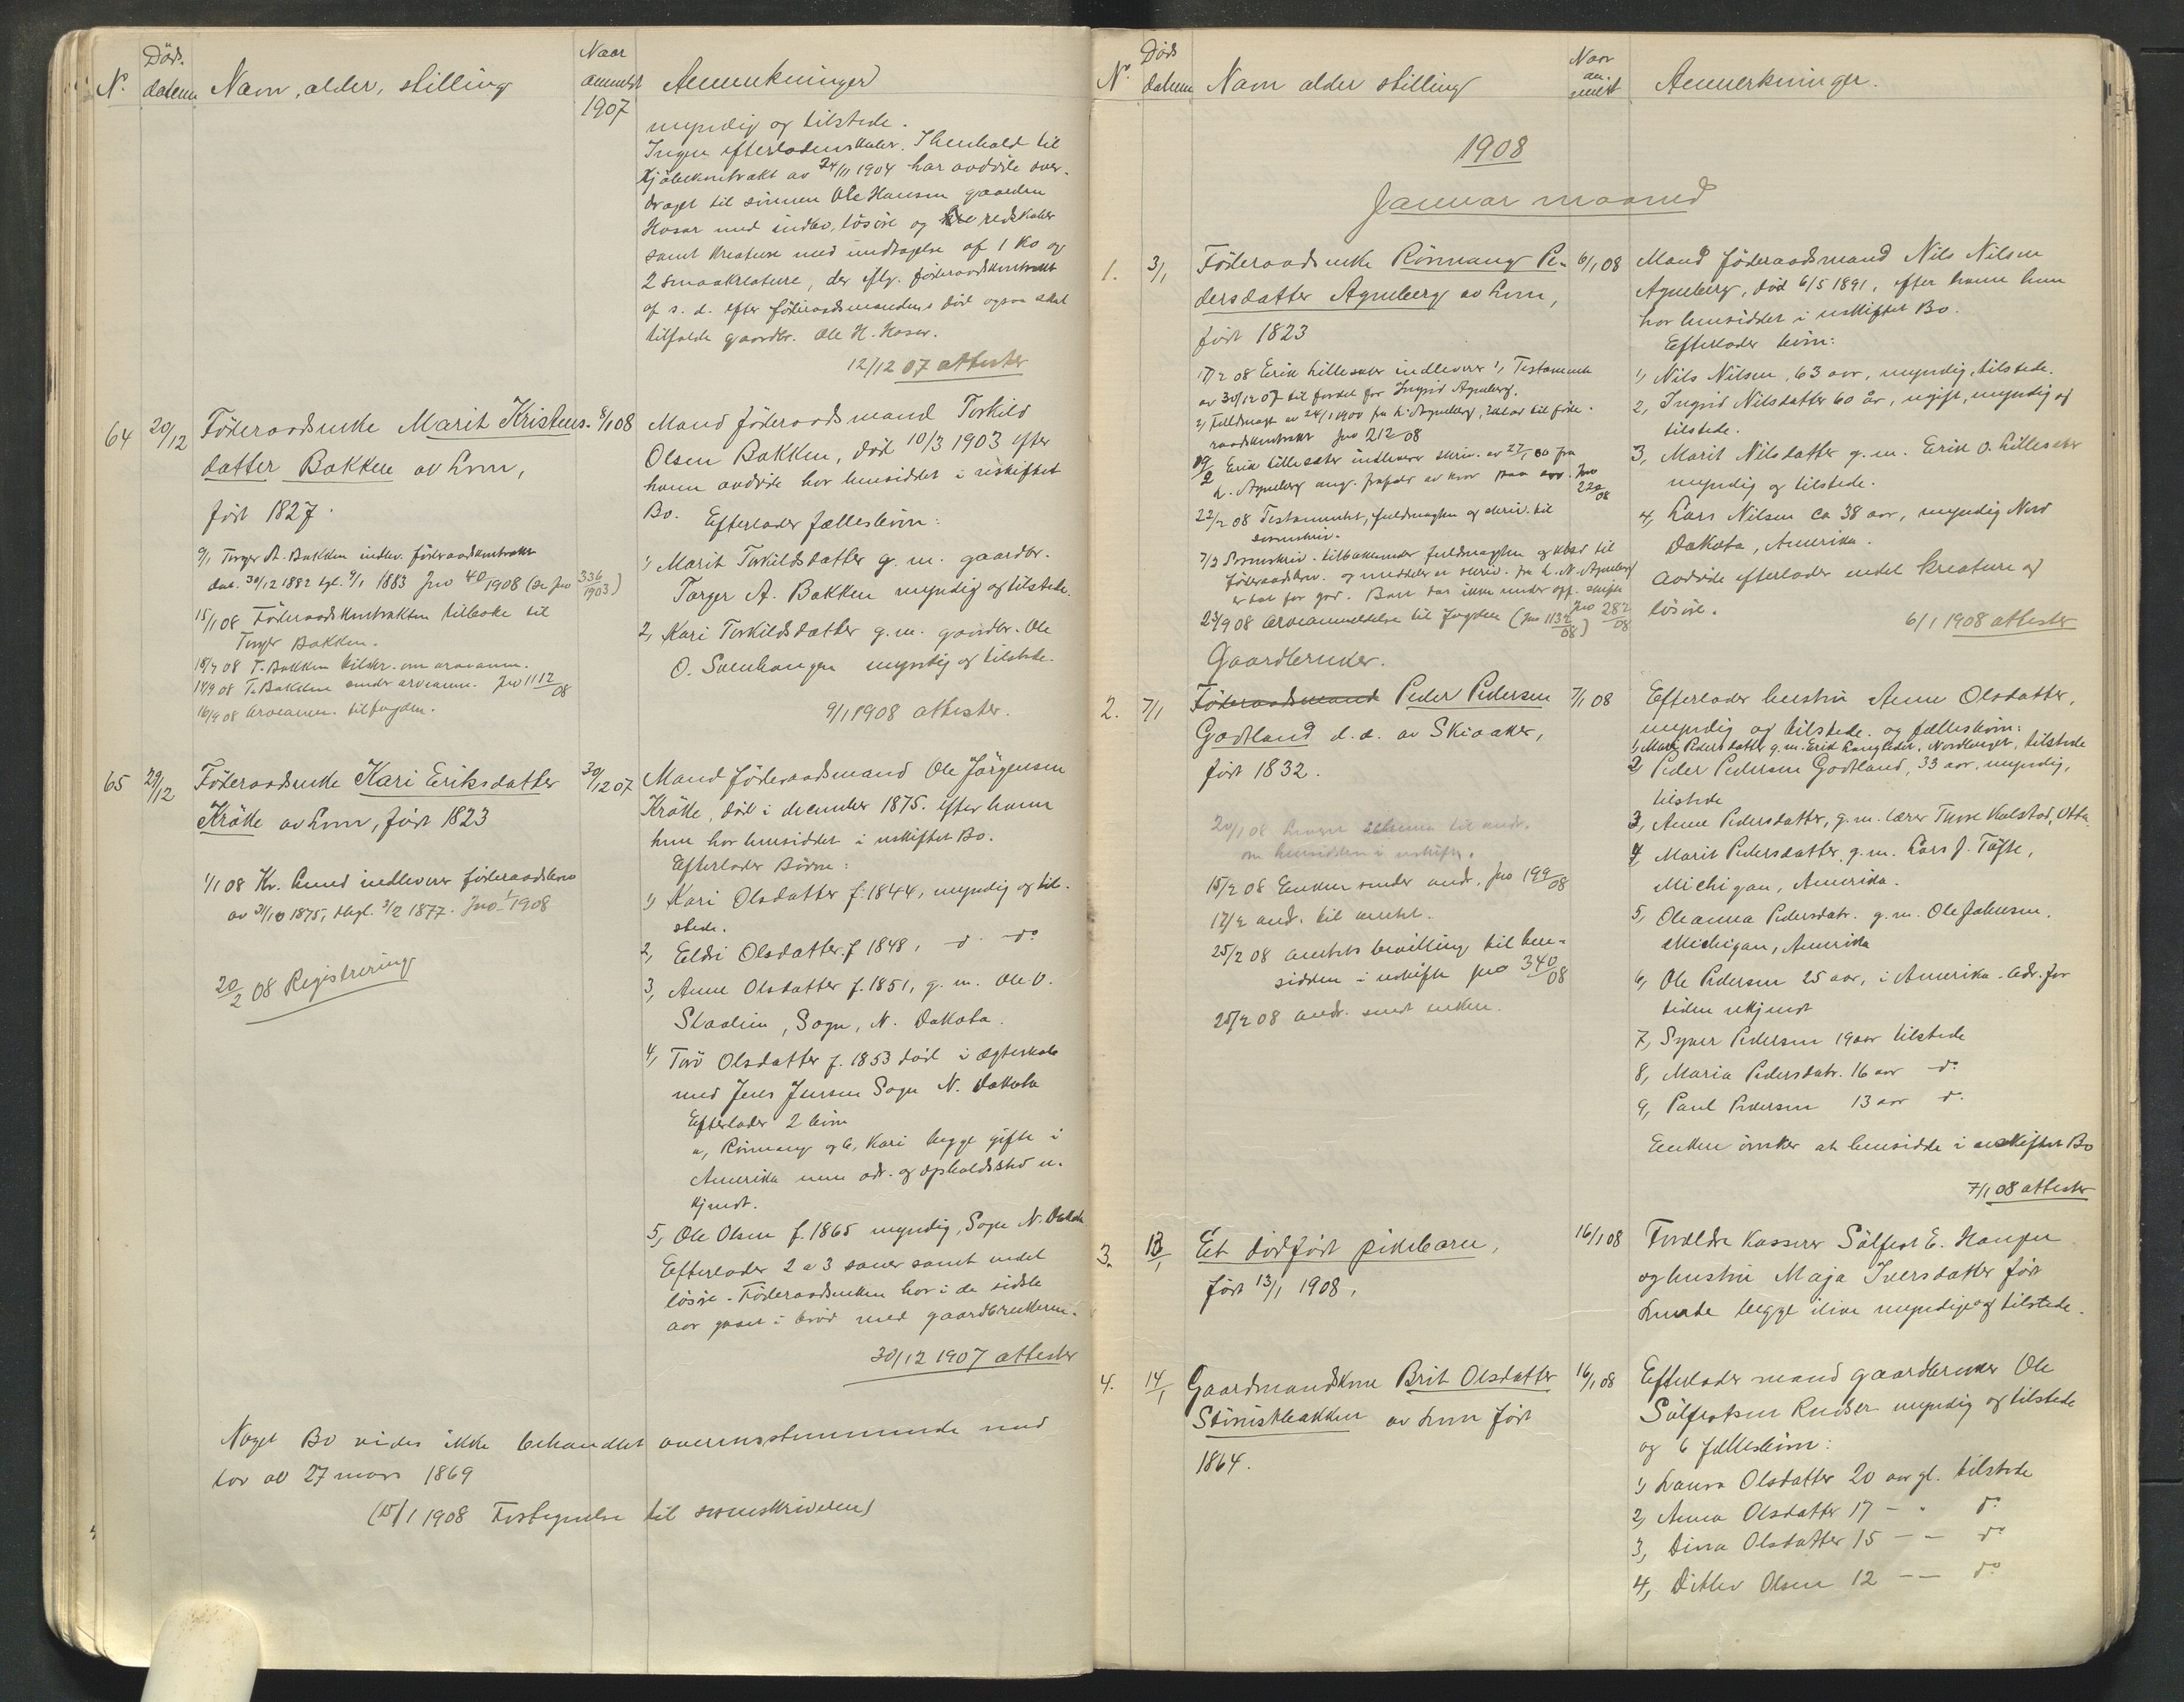 N. Døds datum Navn, alder, stilling Naar anmeldt Anmerkninger
1907
myndig og tilstede.
Ingen efterladenskaber. I henhold til
Kjøbekontrakt av 24/11 1904 har avdøde over-
draget til sønnen Ole Hansen gaarden
Hosar med indbo, løsøre og redskaber
samt kreature med undtagelse af 1 ko og
2 smaakreature, der iflg. føderaadskontrakt
af s. d. efter føderaadsmandens død ogsaa skal
tilfalde gaardbr. Ole H. Hosar.
12/12 07 attester
64 20/12 Føderaadsenke Marit Kristens-
datter Bakken av Lom,
født 1827.
9/1 Torger A. Bakken indlev. føderaadskontrakt
dat. 30/12 1882 tgl. 9/1 1883 Jno 40 1908 (se Jno 336/1903)
15/1 08 Føderaadskontrakten tilbake til
Torger Bakken.
18/7 08 T. Bakken tilskr. om arveanm.
14/9 08 T. Bakken sender arveanm. Jno 1112/08
16/9 08 Arveanm. til fogden.
8/1 08
Mand føderaadsmand Torkild
Olsen Bakken, død 10/3 1903 efter
hvem avdøde har hensiddet i uskiftet
Bo. Efterlader fællesbørn:
1) Marit Torkildsdatter g. m. gaardbr.
Torger A. Bakken myndig og tilstede.
2, Kari Torkildsdatter g. m. gaardbr. Ole
O. Suenhaugen myndig og tilstede.
9/1 1908 attester.
65 29/12 Føderaadsenke Kari Eriksdatter
Kråkke av Lom, født 1823
1/1 08 Kr. Lund indleverer føderaadsbrev
av 31/10 1875, thgl. 3/2 1877. Jno 1/1908
20/2 08 Registrering
30/12 07
Mand føderaadsmand Ole Jørgensen
Kråkke, død i december 1875. efter hvem
hun har hensiddet i uskiftet Bo.
Efterlader Børn:
1) Kari Olsdatter f. 1844, myndig og til-
stede.
2, Eldri Olsdatter f 1848, -d- -do
3, Anne Olsdatter f. 1851, g. m. Ole O.
Staalien, Sogn, N. Dakota.
4, Torø Olsdatter f. 1853 død i ægteskab
med Jens Jensen Sogn N. Dakota
Efterlader 2 børn
a, Rønnaug og b, Kari begge gifte i
Amerika men adr. og opholdssted u-
kjendt.
5, Ole Olsen f. 1865 myndig, Sogn N. Dakota
Efterlader 2 a 3 sauer samt endel
løsøre. Føderaadsenken har i de sidste
aar gaaet i brød med gaardbrukeren.
30/12 1907 attester
Noget Bo vides ikke behandlet overensstemmende med
lov av 27 mars 1869
(15/1 1908 Fortegnelse til sorenskriveren)
N. Døds datum Navn alder stilling Naar an- meldt Anmerkninger.
1908
Januar maaned
1. 3/1 Føderaadsenke Rønnaug Pe-
dersdatter Agneberg av Lom,
født 1823
17/2 08 Erik Lillesæter indleverer 1) Testamente
av 30/12 07 til fordel for Ingrid Agneberg.
2) Fuldmagt av 24/1 1900 fra L. Agneberg, til føde-
raadskontrakt Jno 212 08
19/2 Erik Lillesæter indleverer skriv. av 27/1 00 fra
L. Agneberg ang. frafald av krav paa arv. Jno 220/08
22/2 08 Testamentet, fuldmagten og skriv. til
sorenskriv.
7/3 Sorenskriv. tilbakesender fuldmagten og til
føderaadsbrev. og meddeler at skriv. fra L. N. Agneberg
er tat for god. Boet tas ikke under off. skifte
Jno 282/08
23/9 08 Arveanmeldelse til fogden (Jno 1132/08)
6/1 08
Mand føderaadsmand Nils Nilsen
Agneberg, død 6/5 1891, efter hvem hun
har hensiddet i uskiftet Bo.
Efterlader børn:
1) Nils Nilsen, 63 aar, myndig, tilstede.
2, Ingrid Nilsdatter 60 år, ugift, myndig og
tilstede.
3, Marit Nilsdatter g. m. Erik O. Lillesæter
myndig og tilstede.
4, Lars Nilsen ca 38 aar, myndig Nord
Dakota, Amerika.
Avdøde efterlader endel kreature og
løsøre.
6/1 1908 attester
Gaardbruker.
2. 7/1 Føderaadsmand Peder Pedersen
Godtland d. æ. av Skiaaker,
født 1832.
20/1 08 til andr.
om hensidden i uskifte.
15/2 08 Enken sender andr. Jno 199/08
17/2 andr. til amtet.
25/2 08 amtets bevilling til hen-
sidden i uskifte Jno 340/08
25/2 08 andr. sendt enken.
7/1 08
Efterlader hustru Anne Olsdatter,
myndig og tilstede. og fællesbørn:
1, Mari Pedersdatter g. m. Erik Langleder, Nordberget, tilstede
2, Peder Pedersen Godtland, 33 aar, myndig,
tilstede
3, Anne Pedersdatter, g. m. lærer Thore Kolstad, Otta
4, Marit Pedersdatter, g. m. Lars J. Tøfte,
Michigan, Amerika.
5, Oleanna Pedersdatr. g. m. Ole Johnsen,
Michigan, Amerika
6, Ole Pedersen 25 aar, i Amerika. Adr. for
tiden ukjendt
7, Syver Pedersen 19 aar tilstede
8, Maria Pedersdatr. 16 aar do
9, Paul Pedersen 13 aar do
Enken ønsker at hensidde i uskiftet Bo
7/1 08 attester
3. 13/1 Et dødfødt pikebarn,
født 13/1 1908.
16/1 08
Forældre Kasserer Sølfest E. Haugen
og hustru Maja Iversdatter født
begge ilive myndige og tilstede.
4. 14/1 Gaardmandskone Brit Olsdatter
Stimistbakken av Lom født
1864.
16/1 08
Efterlader mand gaardbruker Ole
Sølfestsen Rudser myndig og tilstede
og 6 fællesbørn:
1) Laura Olsdatter 20 aar gl. tilstede
2, Anna Olsdatter 17 - " do
3, Dina Olsdatter 15 - - do
4, Ditlev Olsen 12 - - do